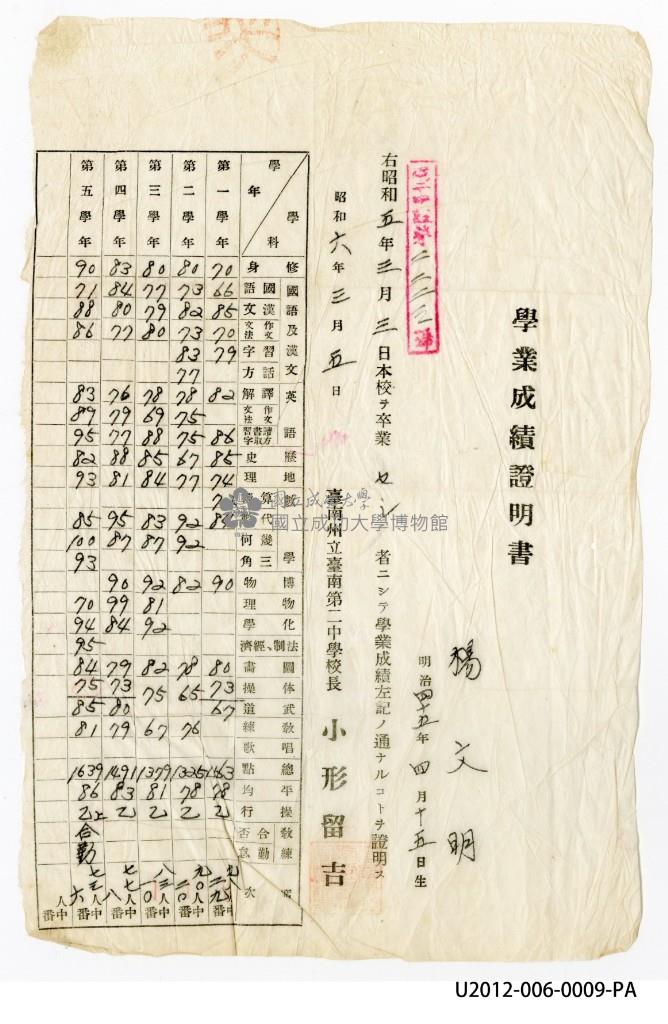 學業成績證明書
楊文明
明治四十五年四月十五日生
右昭和五年三月三日本校ヲ卒業セシ者ニシテ學業成績左記ノ通ナルコトヲ證明ス
昭和六年三月五日
臺南州立臺南第二中學校長 小形留吉
學年 學科 第一學年 第二學年 第三學年 第四學年 第五學年
修身 70 80 80 83 90
國語及漢文 國語 66 73 77 84 71
漢文 85 82 79 80 88
作文 文法 70 73 80 77 86
習字 79 83
話方 77
英語 解譯 82 78 78 76 83
作文 文法 75 69 79 89
讀方 書取 習字 86 75 88 77 95
歷史 85 67 85 88 82
地理 74 77 84 81 93
數學 算
代 92 83 95 85
幾何 92 87 87 100
三角 93
博物 90 82 92 90
物理 81 99 70
化學 92 84 94
法制、經濟 95
圖畫 80 78 82 79 84
体操 73 65 75 73 75
武道 67 80 85
教練 76 67 79 81
唱歌
總點 1325 1379 1491 1639
平均 78 78 81 83 86
操行 乙 乙 乙 乙 乙上
教練合否 合
勤怠 勤
席次
人中 番
國立成功大學
國立成功大學博物館
U2012-006-0009-PA